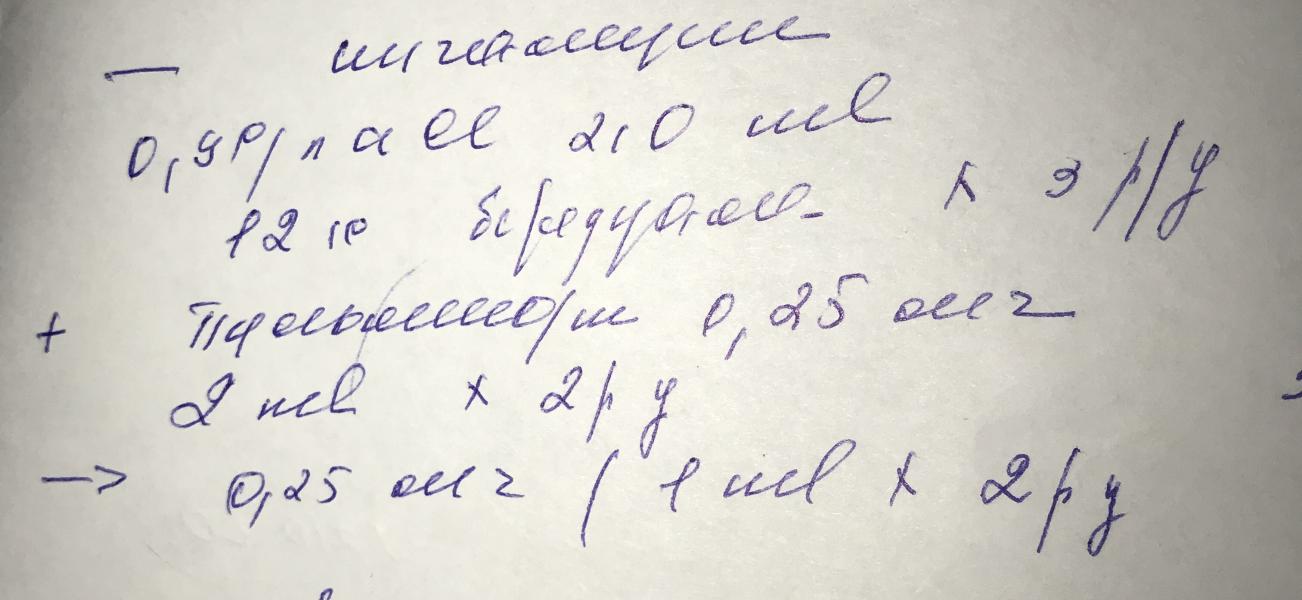 — ингаляции
0,9% NaCl 2,0 мл
12 к беродуала х 3 р/д
+ Пульмикорт 0,25 мг
2 мл х 2 р д
→ 0,25 мг / 1 мл х 2 р д